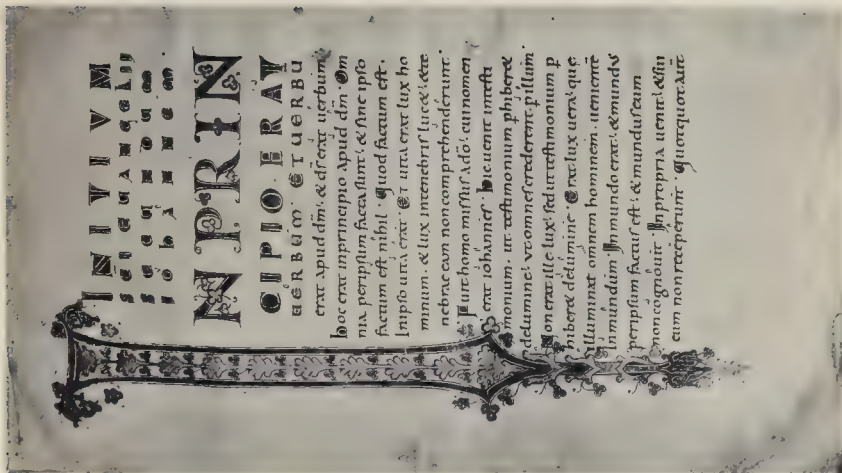 INITIVM
SCI EUANGELII
SECUNDUM
IOHANNEM
INPRIN
CIPIO ERAT
UERBUM ETUERBU
erat apud dm̄· & dſ erat uerbum·
hoc erat inprincipio apud dm̄· Om
nia peripſum facta ſunt· & ſine ipſo
factum eſt nihil· Quod factum eſt·
Inipſo uita erat· Et uita erat lux ho
minum· & lux intenebriſ lucet· & te
nebrae eam non comprehenderunt·
Fuit homo miſſuſ ado· cui nomen
erat iohanneſ· hic uenit inteſti
monium· ut teſtimonium phiberet
delumine· ut omneſ crederent p illum·
Non erat ille lux· ſed ut teſtimonium p
hiberet delumine· Erat lux uera· que
illuminat omnem hominem· uenientē
inmundum· Inmundo erat· & munduſ
peripſum factuſ eſt· & munduſ eum
non cognouit· Inpropria uenit· & ſui
eum non receperunt· Quotquot aut̄